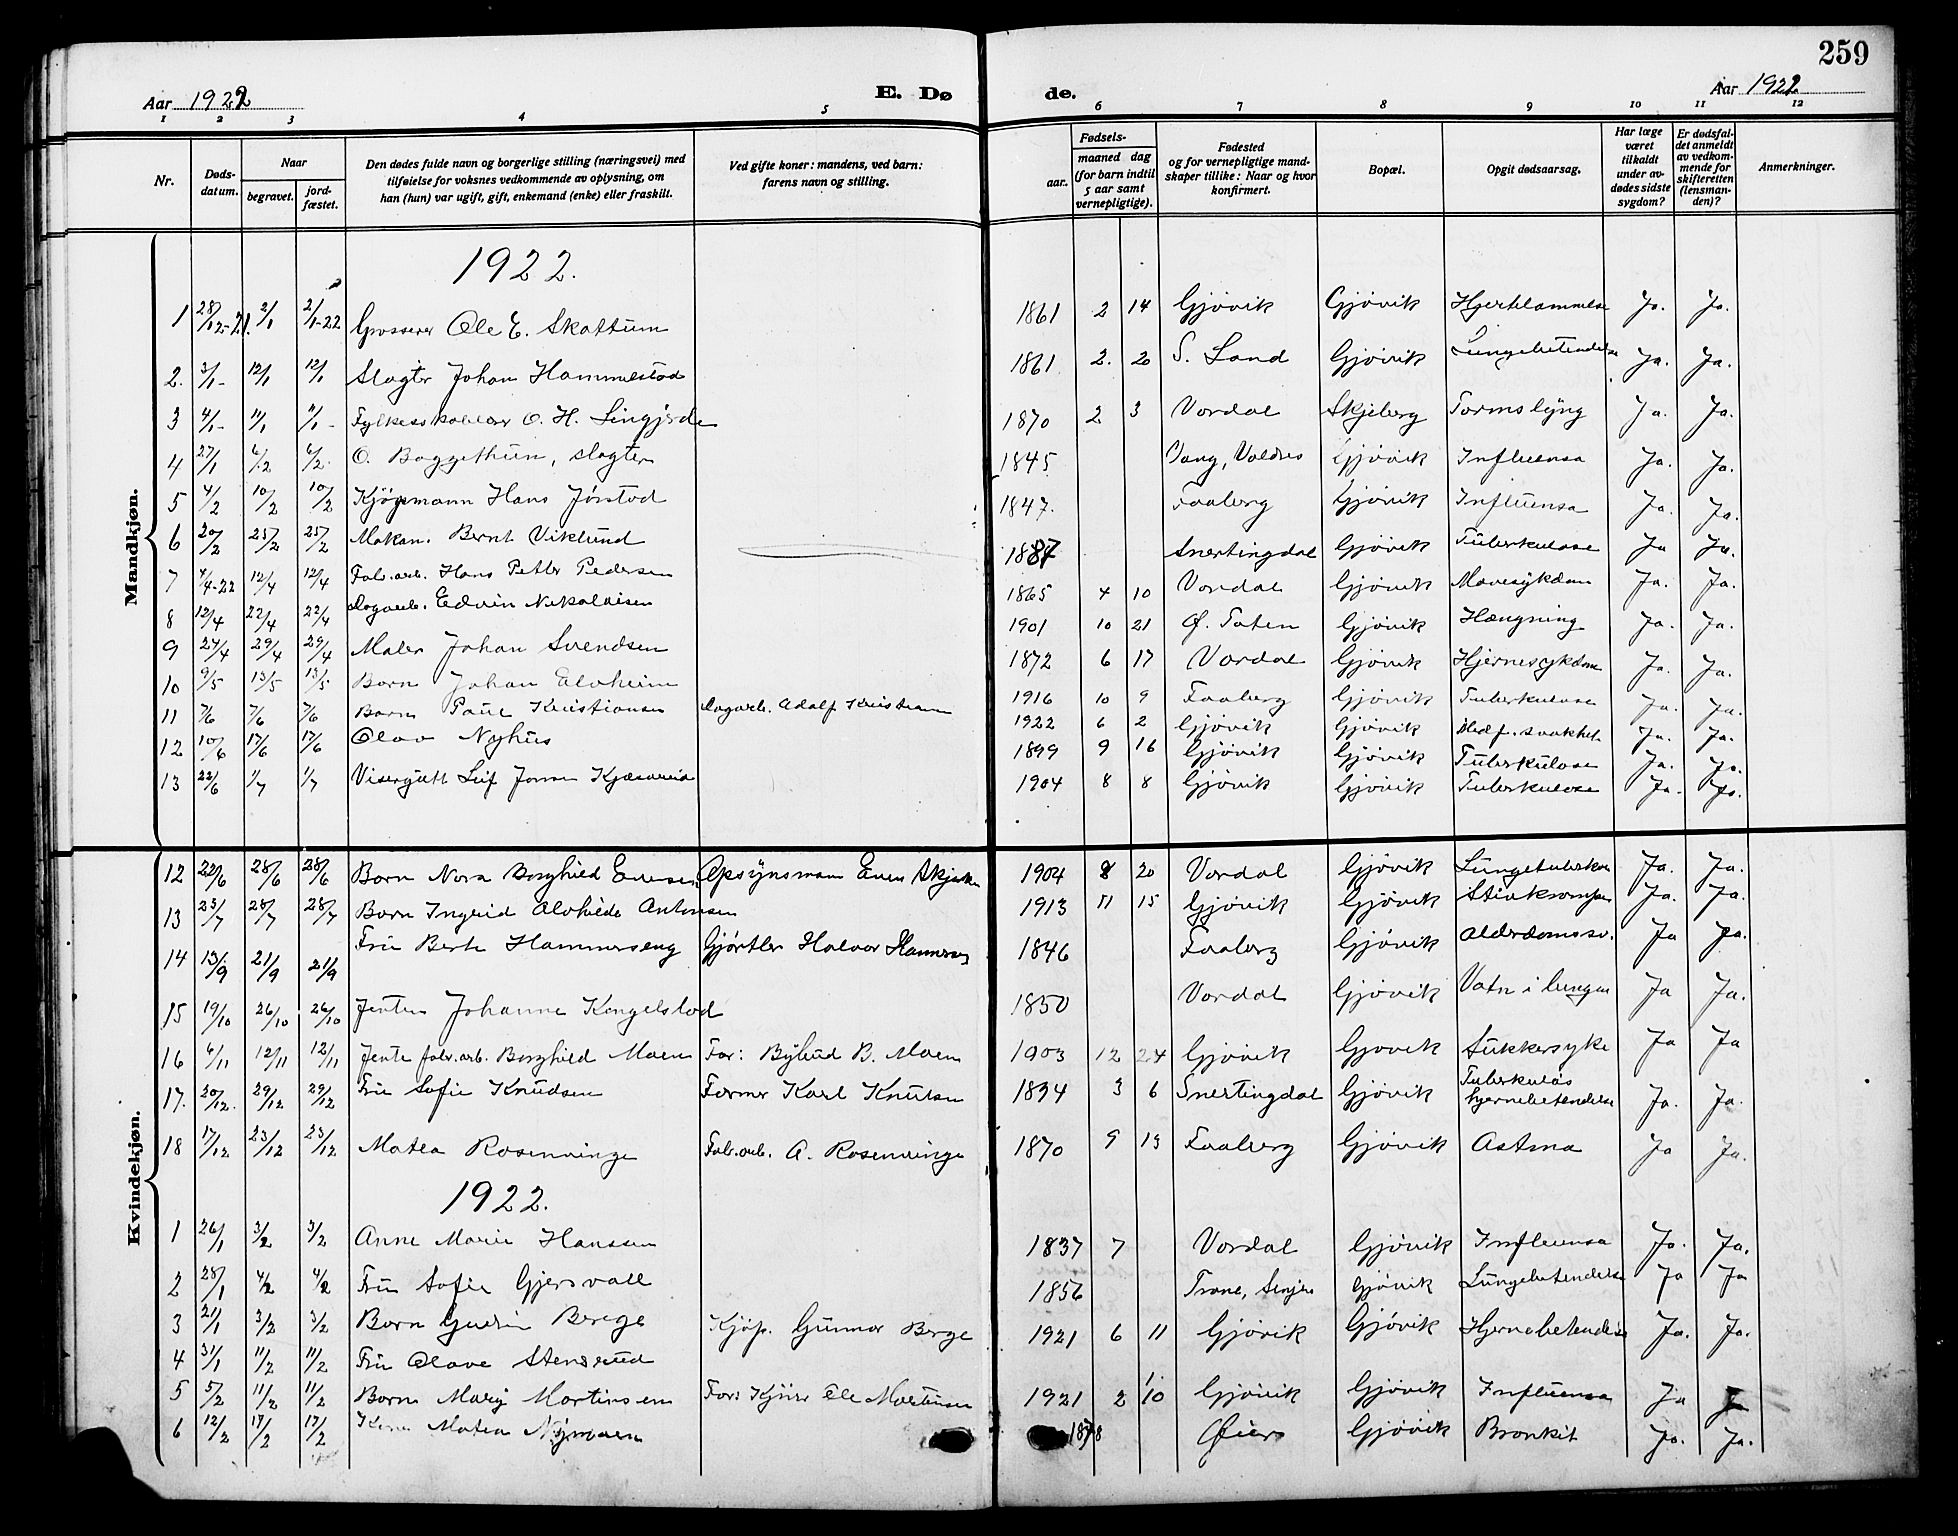 259
Aar 1922
E. Dø
de.
Aar 1922
1 2 3 4 5 6 7 8 9 10 11 12
Nr.
Døds-
datum.
Naar
begravet.
jord-
fæstet.
Den dødes fulde navn og borgerlige stilling (næringsvei) med
tilføielse for voksnes vedkommende av oplysning, om
han (hun) var ugift, gift, enkemand (enke) eller fraskilt.
Ved gifte koner: mandens, ved barn:
farens navn og stilling.
Fødsels-
aar.
maaned dag
(for barn indtil
5 aar samt
vernepligtige).
Fødested
og for vernepligtige mand-
skaper tillike: Naar og hvor
konfirmert.
Bopæl.
Opgit dødsaarsag.
Har læge
været
tilkaldt
under av-
dødes sidste
sygdom?
Er dødsfal-
det anmeldt
av vedkom-
mende for
skifteretten
(lensman-
den)?
Anmerkninger.
Mandkjøn.
1922.
1 28/12-21. 2/1 2/1-22 Grosserer Ole E. Skattum 1861 2 14 Gjövik Gjövik Hjertelammelse Ja. Ja.
2. 3/1- 12/1 12/1 Slagter Johan Hammestad 1861 2. 20 S. Land Gjövik Lungebetendelse Ja. Ja.
3 4/1- 11/1 11/1- O. H. 1870 2 3 Vardal Skjeberg Tarmslyng Ja. Ja.
4 27/1 6/2 6/2. O. Baggethun, slagter 1845 Vang, Valdres Gjövik Influensa Ja. Ja.
5 4/2 10/2 10/2 Kjøpmann Hans Jørstad 1847. Faaberg Gjövik Influensa Ja. Ja.
6 20/2 25/2 25/2 Mekan. Bernt Viklund 1887 Snertingdal Gjövik Tuberkulose Ja Ja.
7 4/4-22 12/4 12/4 Fabr.arb. Hans Petter Pedersen 1865 4 10 Vardal Gjövik Mavesykdom Ja. Ja.
8 12/4 22/4 22/4 Dagarb. Edvin Nikolaisen 1901 10 21 Ø. Toten Gjövik Hængning Ja. Ja.
9 24/4 29/4 29/4 Maler Johan Svendsen 1872 6 17 Vardal Gjövik Hjernesykdom Ja. Ja.
10 9/5 13/5 13/5. Barn Johan Elvheim 1916 10 9 Faaberg Gjövik Tuberkulose Ja. Ja.
11 7/6 7/6 7/6 Barn Paul Kristiansen Dagarb. Adolf Kristiansen 1922 6 2 Gjövik Gjövik Medf. svakhet Ja. Ja.
12 10/6 17/6 17/6 Olav Nyhus 1899 9 16 Gjövik Gjövik Tuberkulose Ja. Ja.
13 22/6 1/7 1/7 Visergutt Leif 1904 8 8 Gjövik Gjövik Tuberkulose Ja. Ja.
Kvindekjøn.
12 22/6 28/6 28/6 Barn Nora Borghild Evensen Opsynsmann Even 1904 8 20 Vardal Gjövik Lungetuberkul Ja. Ja.
13 23/7 28/7 28/7 Barn Ingrid Alvhilde Antonsen 1913 11 15 Gjövik Gjövik Stivkrampe Ja. Ja.
14 13/9 21/9 21/9 Fru Berte Hammerseng Gjørtler Halvor Hammerseng 1846 Faaberg Gjövik Alderdomssv. Ja Ja.
15 19/10 26/10 26/10 Jenten Johanne Kengelstad 1850 Vardal Gjövik Vatn i lungen Ja Ja.
16 6/11 12/11 12/11 Jente fabr.arb. Borghild Moen Far: Bybud B. Moen 1903 12 24 Gjövik Gjövik Sukkersyke Ja Ja
17. 20/12. 29/12 29/12 Fru Sofie Knudsen Former Karl Knutsen 1894 3 6 Snertingdal Gjövik Tuberkuløs
hjernebetendelse Ja. Ja.
18 17/12 23/12 23/12 Matea Rosenvinge Fabr.arb. A. Rosenvinge 1870 9 13 Faaberg Gjövik Astma Ja Ja.
1922.
1 26/1 3/2 3/2 Anne Marie Hanssen 1837 7 Vardal Gjövik Influensa Ja. Ja.
2 28/1 4/2 4/2 Fru Sofie Gjersvall 1856 Trane, Senjen Gjövik Lungebetendelse Ja Ja
3 21/1 3/2 3/2 Barn Gudrun Berge Kjöp. Gunnar Berge 1921 6 11 Gjövik Gjövik Hjernebetendelse Ja. Ja.
4 31/1 11/2 11/2 Fru Olave Stensrud
5 5/2 11/2 11/2 Barn Mary Martinsen Far: Kjörer Ole Martinsen 1921 2 10 Gjövik Gjövik Influensa Ja J
6 12/2 17/2 17/2 Kone Matea Nymoen 1878 Øier Gjövik Bronkit Ja. Ja.